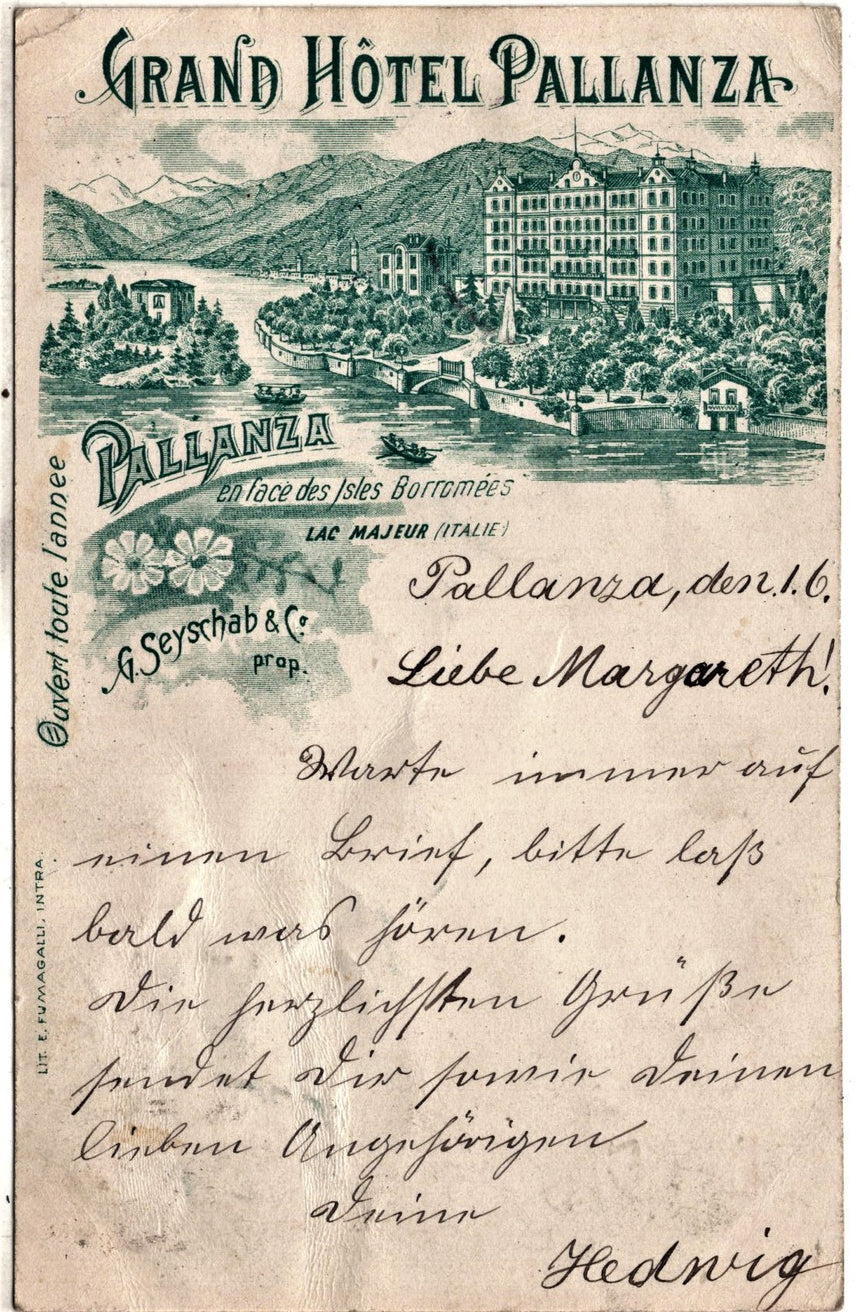 GRAND HÔTEL PALLANZA
PALLANZA
en face des Isles Borromées
LAC MAJEUR (ITALIE)
Ouvert toute l'année
G. Seyschab & Co.
prop.
LIT. E. FUMAGALLI, INTRA.
Pallanza, den 1.6.
Liebe Margareth!
Warte immer auf
einen Brief, bitte laß
bald was hören.
Die herzlichsten Grüße
sendet Dir sowie Deinen
lieben Angehörigen
Deine
Hedwig